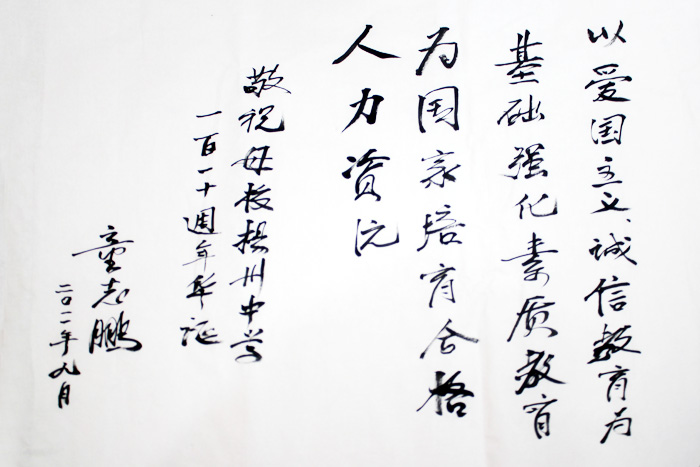 以爱国主义、诚信教育为
基础强化素质教育
为国家培育合格
人力资沅
敬祝母校扬州中学
一百一十週年华诞
童志鹏
二〇一一年九月